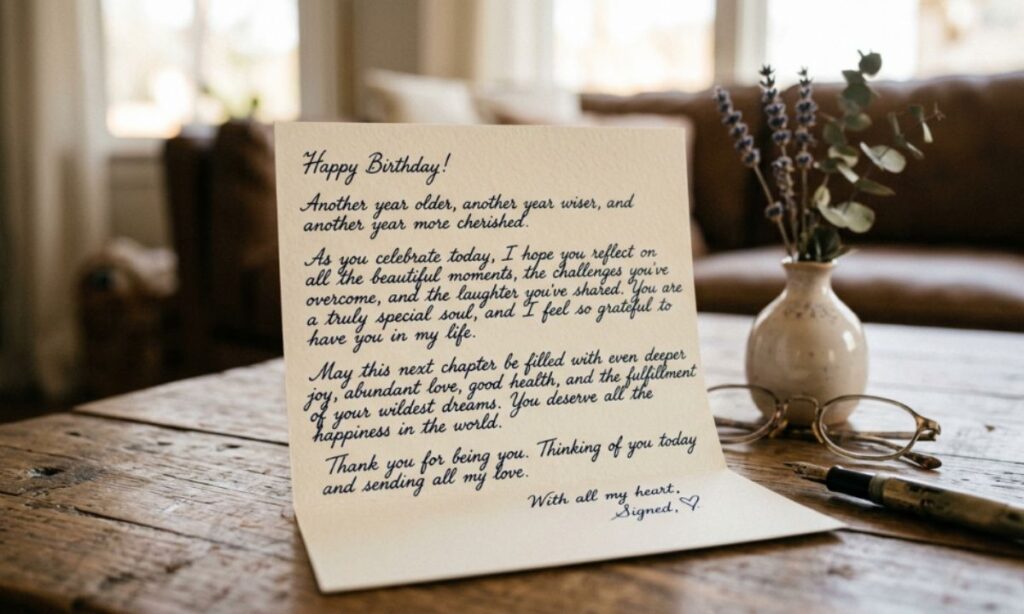 Happy Birthday!
Another year older, another year wiser, and
another year more cherished.
As you celebrate today, I hope you reflect on
all the beautiful moments, the challenges you've
overcome, and the laughter you've shared. You are
a truly special soul, and I feel so grateful to
have you in my life.
May this next chapter be filled with even deeper
joy, abundant love, good health, and the fulfillment
of your wildest dreams. You deserve all the
happiness in the world.
Thank you for being you. Thinking of you today
and sending all my love.
With all my heart,
Signed, ♡